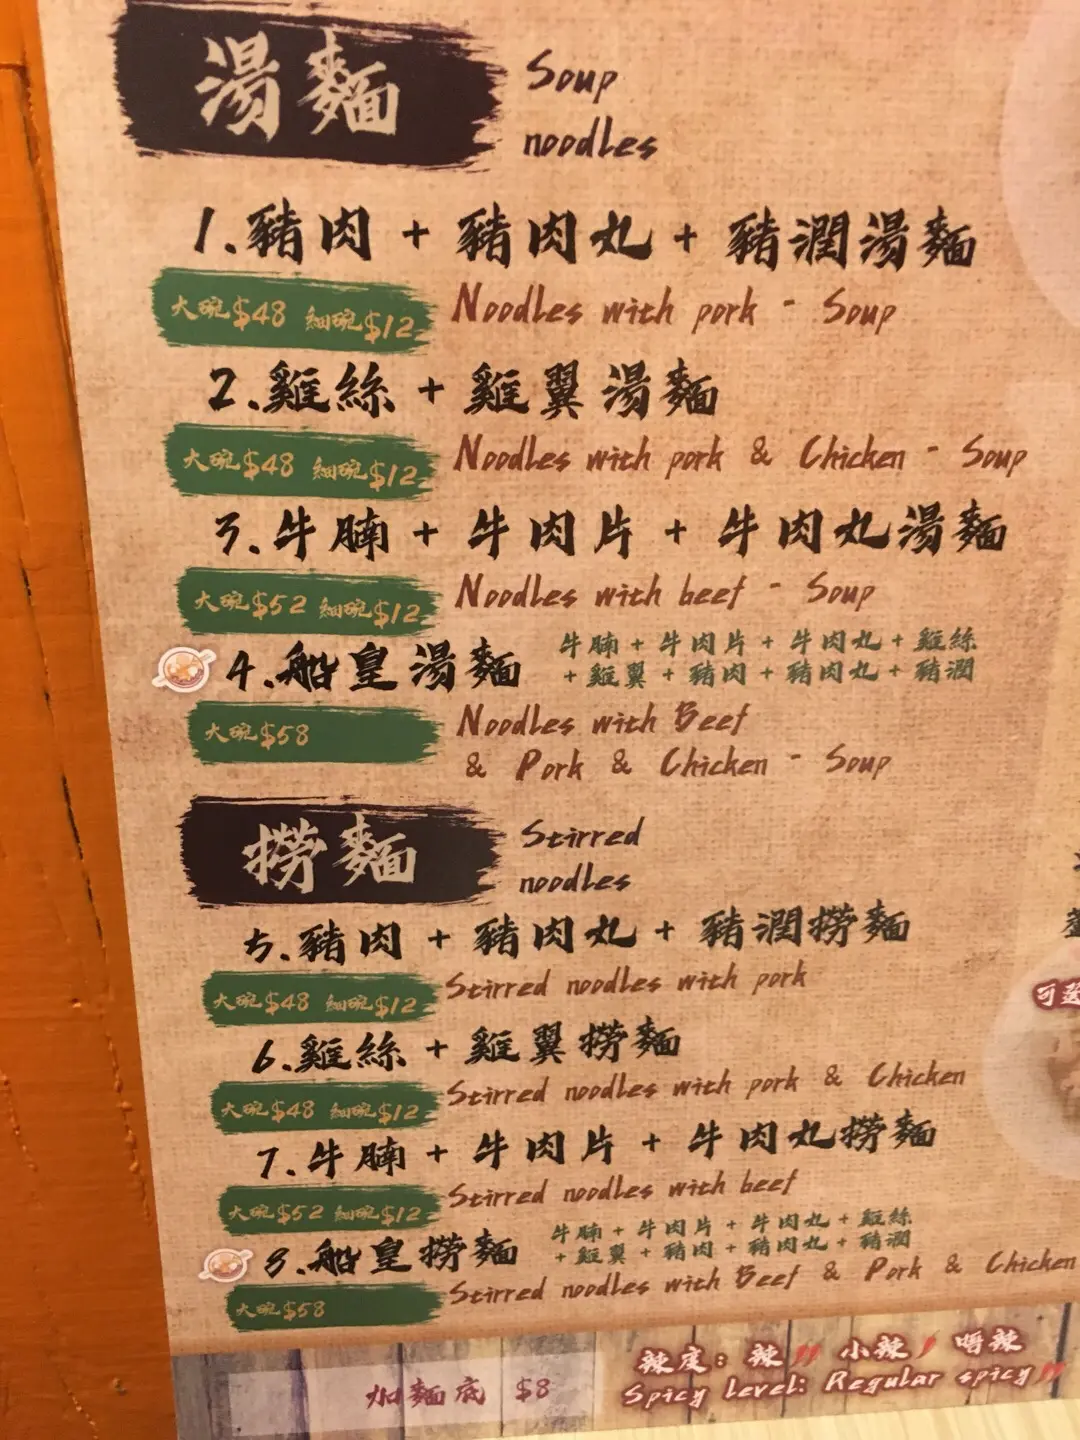 湯麵 Soup
noodles
1.豬肉 + 豬肉丸 + 豬潤湯麵
大碗$48 細碗$12 Noodles with pork - Soup
2.雞絲 + 雞翼湯麵
大碗$48 細碗$12 Noodles with pork & Chicken - Soup
3.牛腩 + 牛肉片 + 牛肉丸湯麵
大碗$52 細碗$12 Noodles with beef - Soup
4.船皇湯麵 牛腩 + 牛肉片 + 牛肉丸 + 雞絲
+ 雞翼 + 豬肉 + 豬肉丸 + 豬潤
大碗$58 Noodles with Beef
& Pork & Chicken - Soup
撈麵 Stirred
noodles
5.豬肉 + 豬肉丸 + 豬潤撈麵
大碗$48 細碗$12 Stirred noodles with pork
6.雞絲 + 雞翼撈麵
大碗$48 細碗$12 Stirred noodles with pork & Chicken
7.牛腩 + 牛肉片 + 牛肉丸撈麵
大碗$52 細碗$12 Stirred noodles with beef
8.船皇撈麵 牛腩 + 牛肉片 + 牛肉丸 + 雞絲
+ 雞翼 + 豬肉 + 豬肉丸 + 豬潤
大碗$58 Stirred noodles with Beef & Pork & Chicken
加麵底 $8
辣度: 辣 小辣 唔辣
Spicy Level: Regular spicy
可選